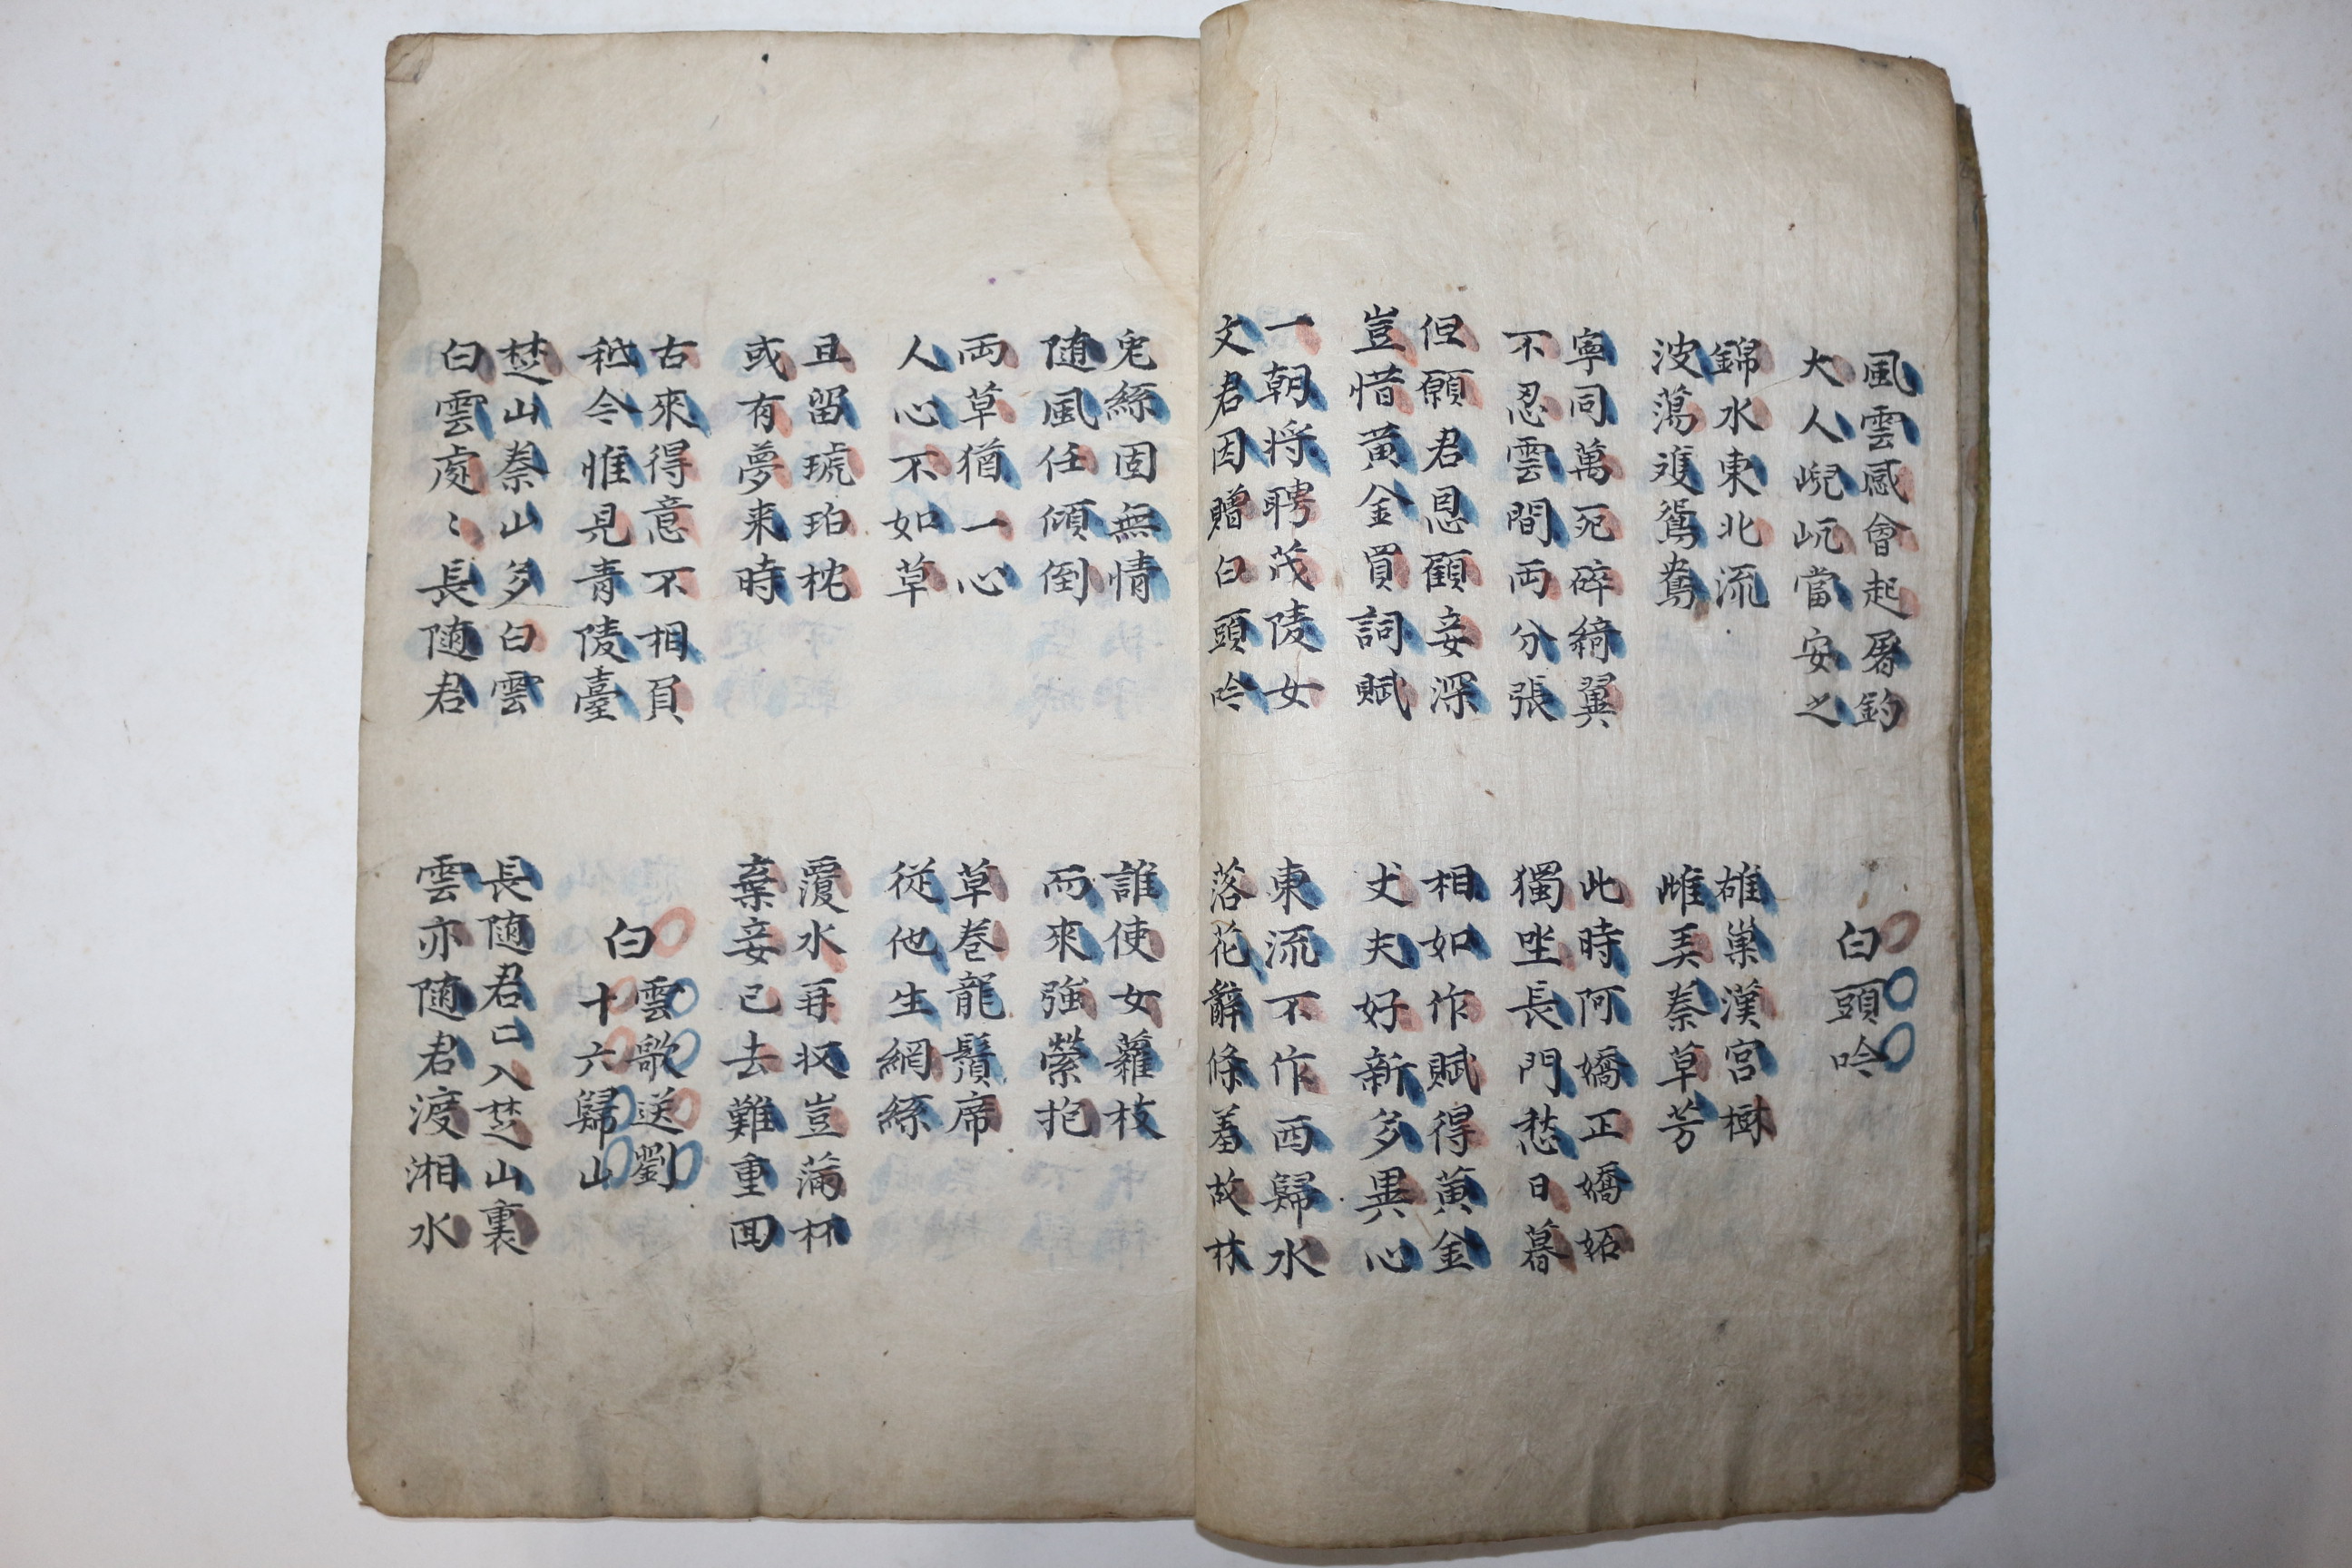 風雲感會起屠釣
大人峴屼當安之
白頭吟
錦水東北流
波蕩雙鴛鴦
雄巢漢宮樹
雌弄秦草芳
寧同萬死碎綺翼
不忍雲間両分張
此時阿嬌正嬌妬
獨坐長門愁日暮
但願君恩顧妾深
豈惜黄金買詞賦
相如作賦得黄金
丈夫好新多異心
一朝将聘茂陵女
文君因贈白頭吟
東流不作西歸水
落花辭條羞故林
兔絲固無情
随風任傾倒
誰使女蘿枝
而來強縈抱
両草猶一心
人心不如草
草卷龍鬚席
從他生網絲
且留琥珀枕
或有夢来時
覆水再収豈滿杯
棄妾已去難重回
古來得意不相負
秪今惟見青陵臺
白雲歌送劉
十六歸山
楚山秦山多白雲
白雲處〻長随君
長随君已入楚山裏
雲亦随君渡湘水